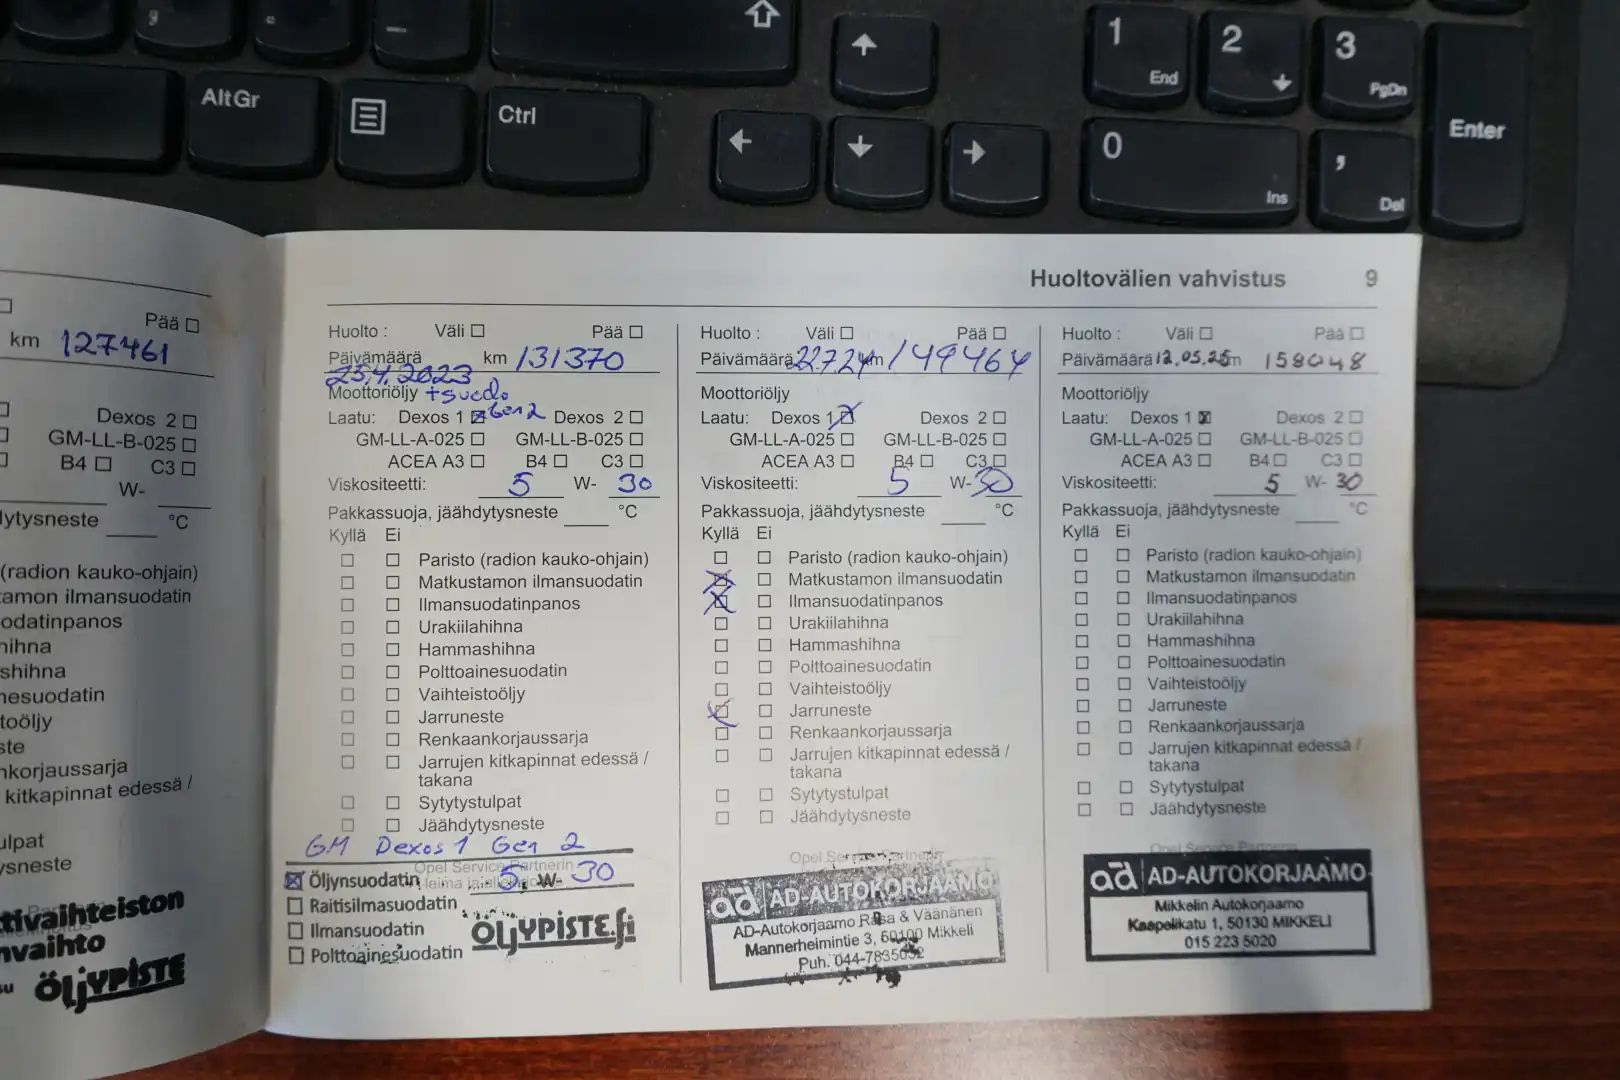 1
End
2
3
PgDn
AltGr
Ctrl
0
Ins
,
Del
Enter
Pää ☐
km 127461
Dexos 2 ☐
GM-LL-B-025 ☐
B4 ☐ C3 ☐
W-
°C
(radion kauko-ohjain)
Huoltovälien vahvistus 9
Huolto : Väli ☐ Pää ☐
Päivämäärä km 131370
25.4.2023
Moottoriöljy + suodo
Laatu: Dexos 1 ☒ Gen 2 Dexos 2 ☐
GM-LL-A-025 ☐ GM-LL-B-025 ☐
ACEA A3 ☐ B4 ☐ C3 ☐
Viskositeetti: 5 W- 30
Pakkassuoja, jäähdytysneste ____ °C
Kyllä Ei
☐ ☐ Paristo (radion kauko-ohjain)
☐ ☐ Matkustamon ilmansuodatin
☐ ☐ Ilmansuodatinpanos
☐ ☐ Urakiilahihna
☐ ☐ Hammashihna
☐ ☐ Polttoainesuodatin
☐ ☐ Vaihteistoöljy
☐ ☐ Jarruneste
☐ ☐ Renkaankorjaussarja
☐ ☐ Jarrujen kitkapinnat edessä /
takana
☐ ☐ Sytytystulpat
☐ ☐ Jäähdytysneste
GM Dexos 1 Gen 2
Opel Service Partnerin
☒ Öljynsuodatin 5 W- 30
☐ Raitisilmasuodatin
☐ Ilmansuodatin
☐ Polttoainesuodatin
ÖLJYPISTE.fi
Huolto : Väli ☐ Pää ☐
Päivämäärä 22.7.24 km 149464
Moottoriöljy
Laatu: Dexos 1 ☒ Dexos 2 ☐
GM-LL-A-025 ☐ GM-LL-B-025 ☐
ACEA A3 ☐ B4 ☐ C3 ☐
Viskositeetti: 5 W- 30
Pakkassuoja, jäähdytysneste ____ °C
Kyllä Ei
☐ ☐ Paristo (radion kauko-ohjain)
☒ ☐ Matkustamon ilmansuodatin
☒ ☐ Ilmansuodatinpanos
☐ ☐ Urakiilahihna
☐ ☐ Hammashihna
☐ ☐ Polttoainesuodatin
☐ ☐ Vaihteistoöljy
☒ ☐ Jarruneste
☐ ☐ Renkaankorjaussarja
☐ ☐ Jarrujen kitkapinnat edessä /
takana
☐ ☐ Sytytystulpat
☐ ☐ Jäähdytysneste
Opel Service Partnerin
ad AD-AUTOKORJAAMO
AD-Autokorjaamo Rasa & Väänänen
Mannerheimintie 3, 50100 Mikkeli
Puh. 044-7835032
Huolto : Väli ☐ Pää ☐
Päivämäärä 12.05.25 km 158048
Moottoriöljy
Laatu: Dexos 1 ☒ Dexos 2 ☐
GM-LL-A-025 ☐ GM-LL-B-025 ☐
ACEA A3 ☐ B4 ☐ C3 ☐
Viskositeetti: 5 W- 30
Pakkassuoja, jäähdytysneste ____ °C
Kyllä Ei
☐ ☐ Paristo (radion kauko-ohjain)
☐ ☐ Matkustamon ilmansuodatin
☐ ☐ Ilmansuodatinpanos
☐ ☐ Urakiilahihna
☐ ☐ Hammashihna
☐ ☐ Polttoainesuodatin
☐ ☐ Vaihteistoöljy
☐ ☐ Jarruneste
☐ ☐ Renkaankorjaussarja
☐ ☐ Jarrujen kitkapinnat edessä /
takana
☐ ☐ Sytytystulpat
☐ ☐ Jäähdytysneste
Opel Service Partnerin
ad AD-AUTOKORJAAMO
Mikkelin Autokorjaamo
Kaapelikatu 1, 50130 MIKKELI
015 223 5020
kitkapinnat edessä /
ÖLJYPISTE